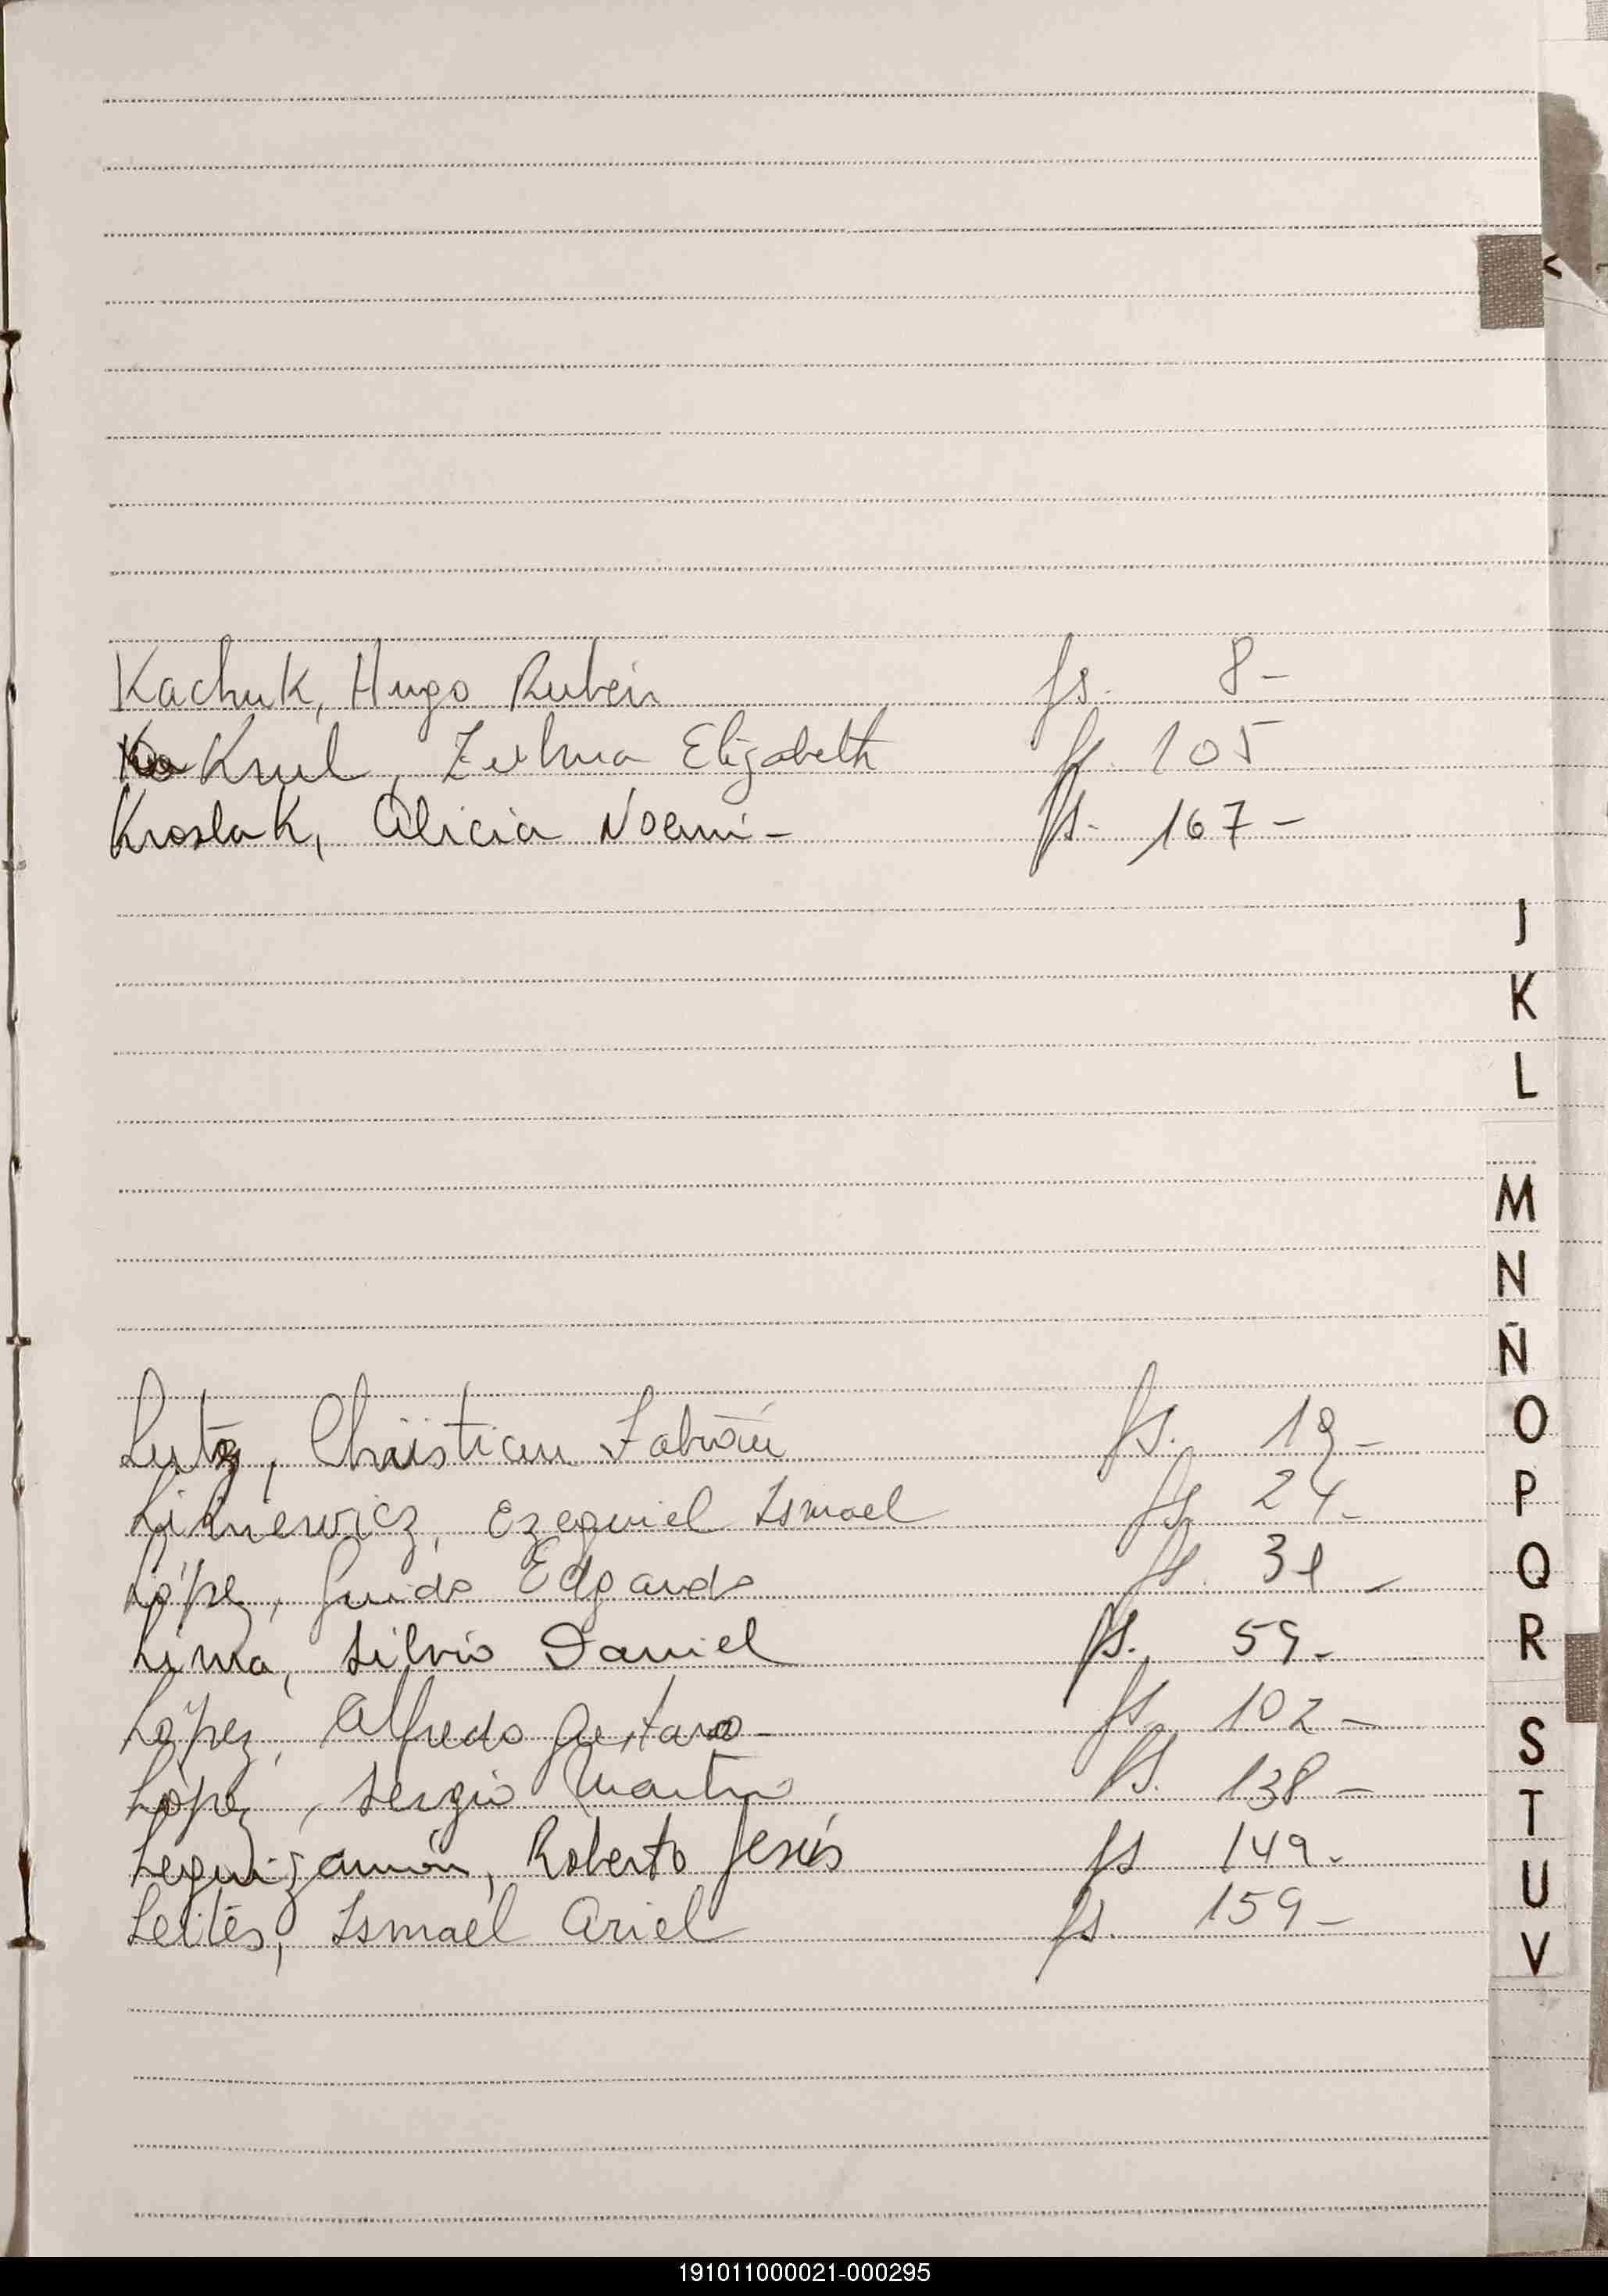 Kachuk, Hugo Rubén fs. 8-
Krul, Zulma Elizabeth fs. 105
Kroslak, Alicia Noemi- fs. 167-
J
K
L
M
N
Ñ
O
P
Q
R
S
T
U
V
Lutz, Christian Fabián fs. 19-
Lizniewicz, Ezequiel Ismael fs. 24-
Lópe, Guido Edgardo fs. 31-
Lima, Silvio Daniel fs. 59-
López, Alfredo Gustavo- fs. 102-
López, Sergio Martin fs. 138-
Leguizamón, Roberto Jesús fs 149-
Leites, Ismael Ariel fs. 159-
191011000021-000295